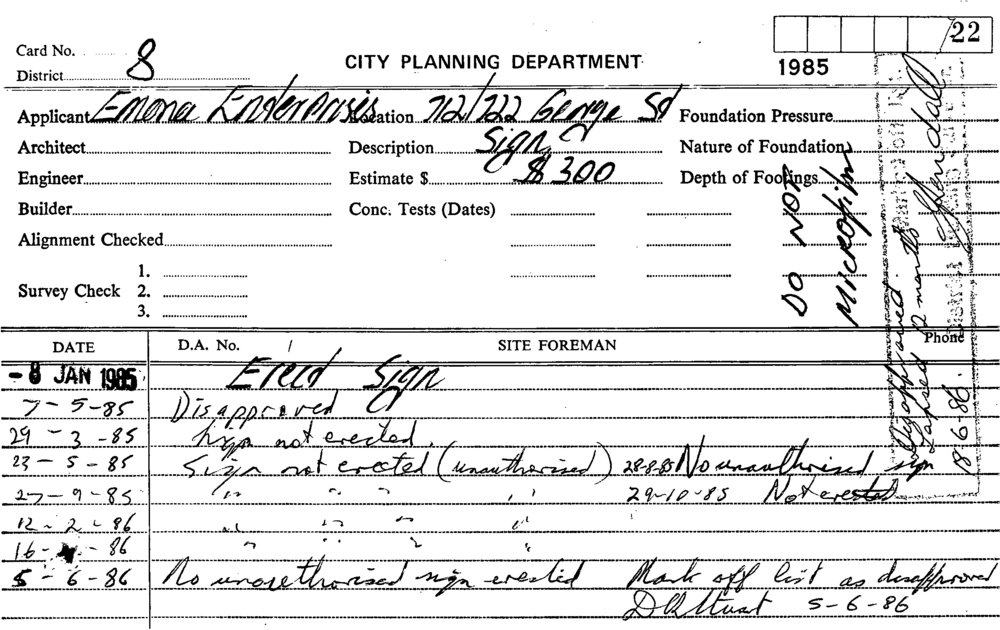 /22
Card No. 8
District
CITY PLANNING DEPARTMENT
1985
Applicant Emona Enterprises Location 712/722 George St Foundation Pressure
Architect Description Sign Nature of Foundation
Engineer Estimate $ $300 Depth of Footings
Builder Conc. Tests (Dates)
Alignment Checked
Survey Check 1.
2.
3.
DO NOT
Microfilm
Disapproved
Lapsed 12 months
18-6-86.
DATE D.A. No. / SITE FOREMAN Phone
- 8 JAN 1985 Erect Sign
7-5-85 Disapproved
29-3-85 Sign not erected.
23-5-85 Sign not erected (unauthorised) 28-8-85 No unauthorised sign
27-9-85 " " " " 29-10-85 Not erected
12-2-86 " " " "
16- -86 " " "
5-6-86 No unauthorised sign erected Mark off list as disapproved
5-6-86